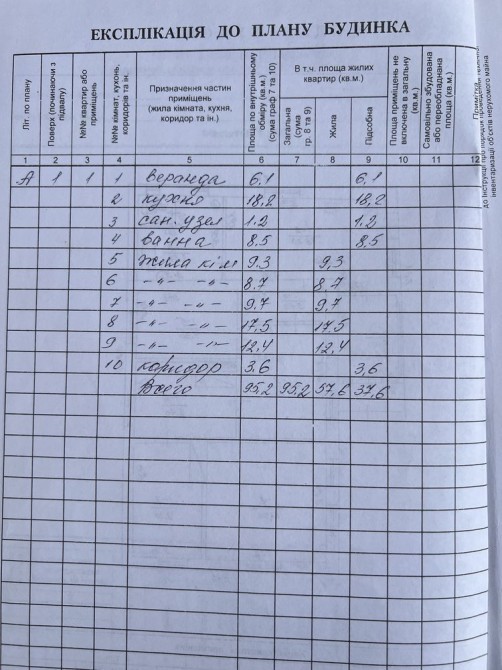 ЕКСПЛІКАЦІЯ ДО ПЛАНУ БУДИНКА
Літ. по плану
Поверх (починаючи з підвалу)
№№ квартир або приміщень
№№ кімнат, кухонь, коридорів та ін.
Призначення частин приміщень (жила кімната, кухня, коридор та ін.)
Площа по внутрішньому обміру (кв.м.) (сума граф 7 та 10)
В т.ч. площа жилих квартир (кв.м.)
Загальна (сума гр. 8 та 9)
Жила
Підсобна
Площа приміщень не включена в загальну (кв.м.)
Самовільно збудована або переобладнана площа (кв.м.)
Примітка
до Інструкції про порядок
інвентаризації об'єктів нерухомого майна
1 2 3 4 5 6 7 8 9 10 11 12
А 1 1 1 веранда 6,1 6,1
2 кухня 18,2 18,2
3 сан. узел 1.2 1.2
4 ванна 8.5 8,5
5 жила кім 9.3 9,3
6 -"- -"- 8.7 8.7
7 -"- -"- 9.7 9.7
8 -"- -"- 17,5 17.5
9 -"- -"- 12,4 12,4
10 коридор 3.6 3,6
Всего 95,2 95,2 57,6 37,6